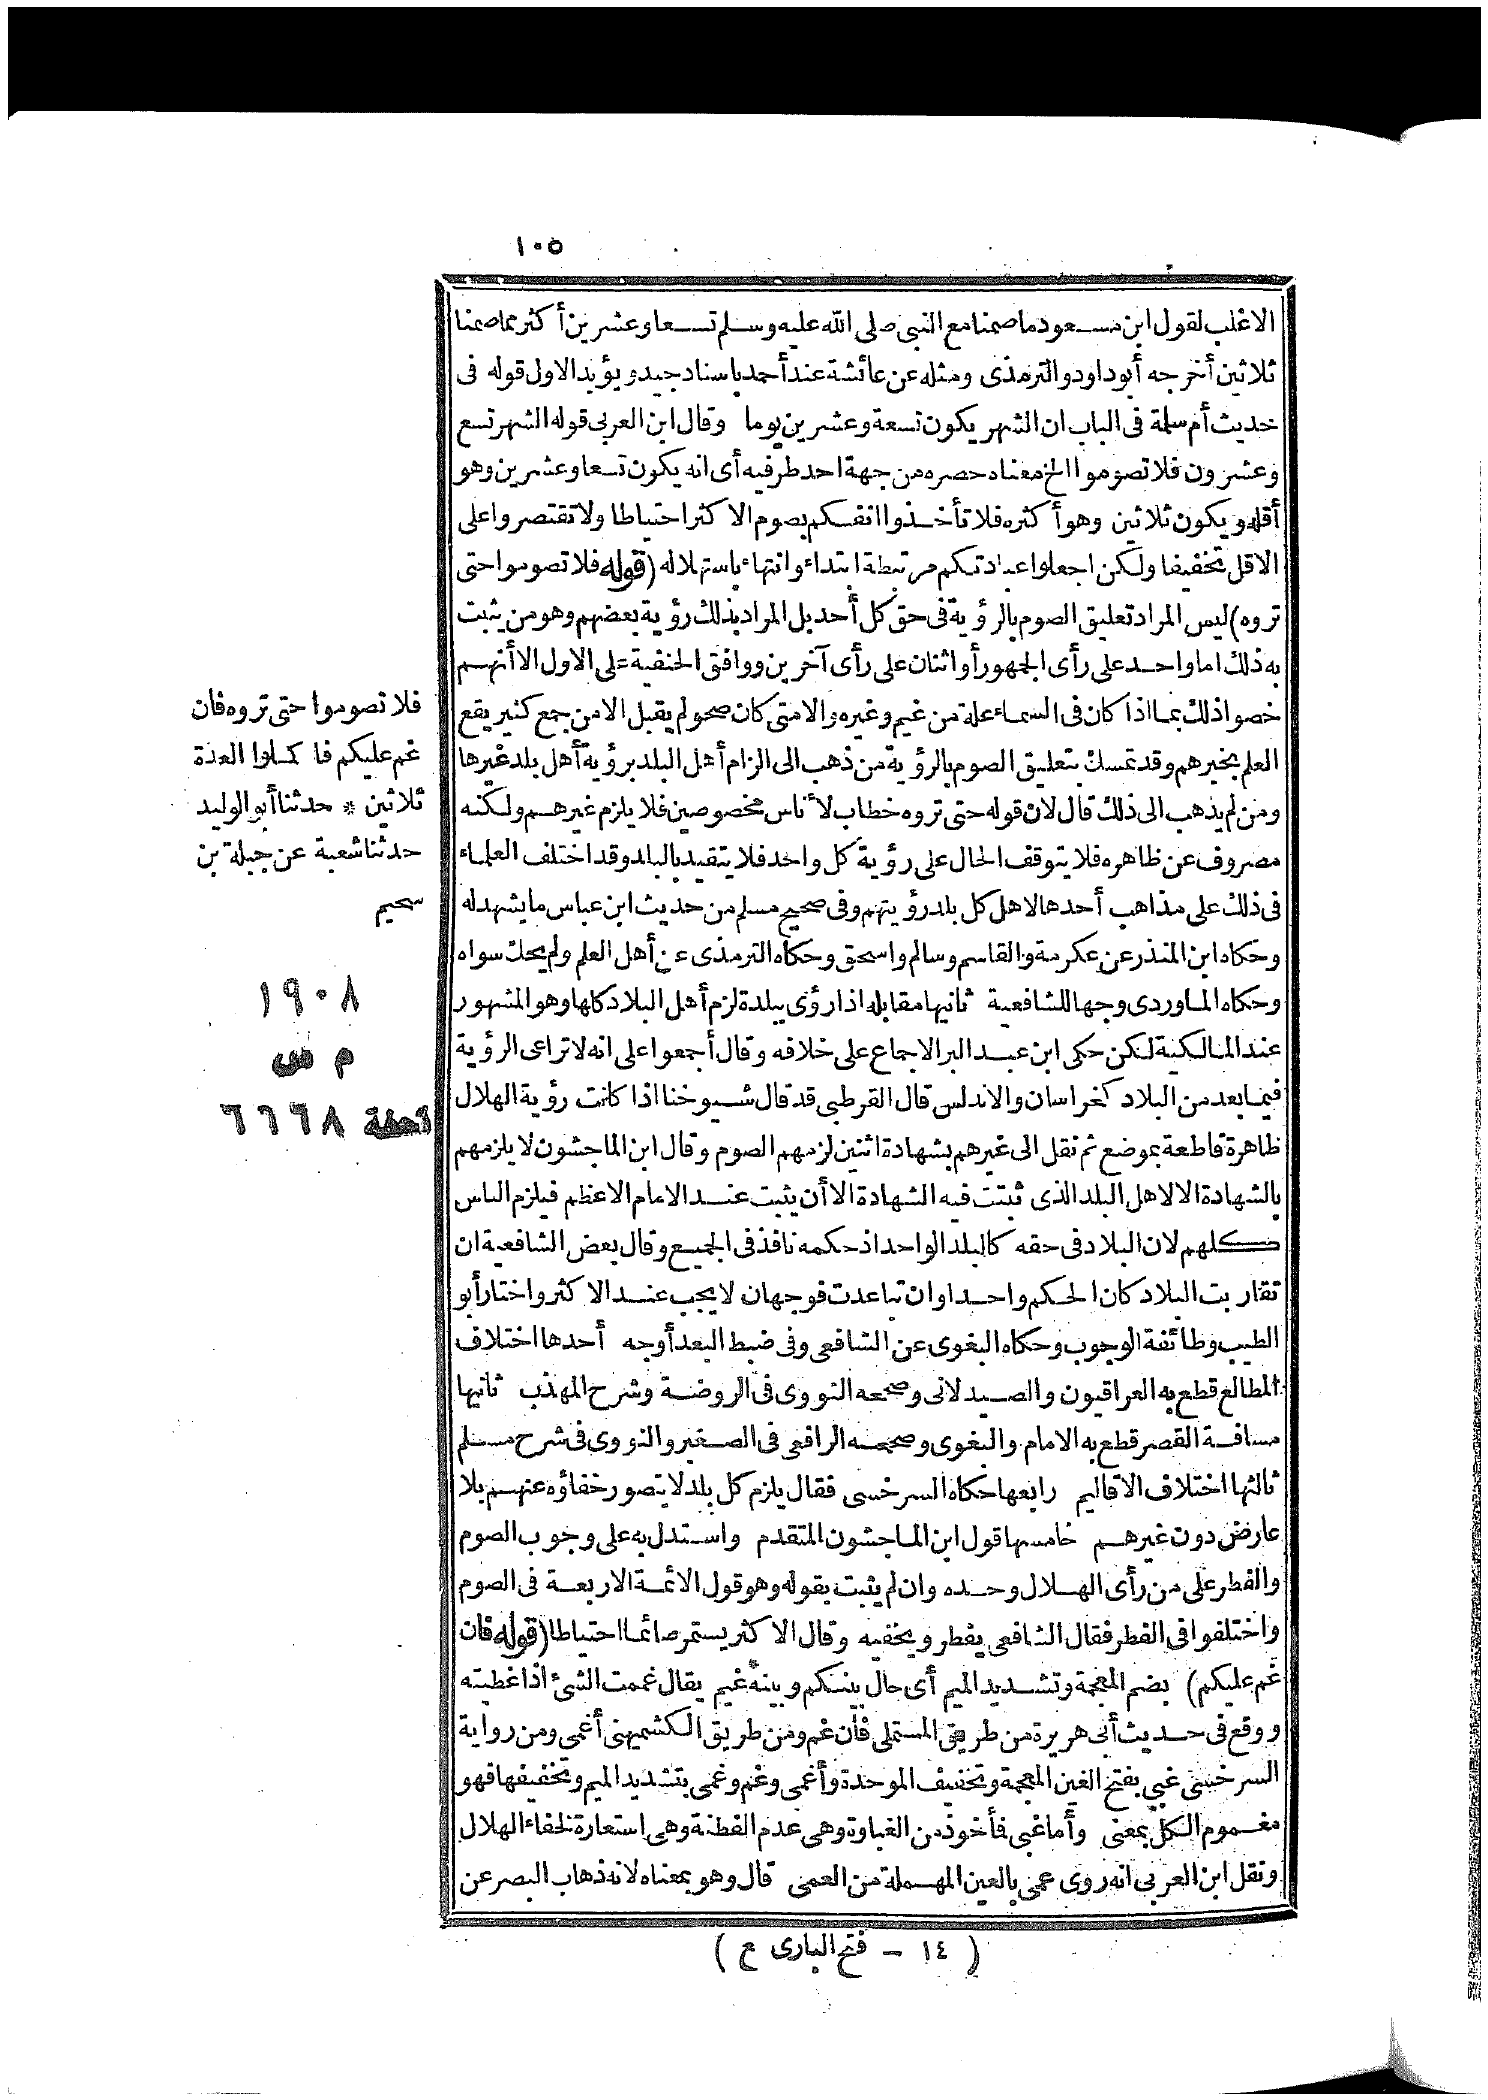 ١٠٥
الاغلب لقول ابن مسعود ما صمنا مع النبي صلى الله عليه وسلم تسعا وعشرين أكثر مما صمنا
ثلاثين أخرجه أبو داود والترمذى ومثله عن عائشة عند أحمد باسناد جيد ويؤيد الاول قوله فى
حديث أم سلمة فى الباب ان الشهر يكون تسعة وعشرين يوما وقال ابن العربى قوله الشهر تسع
وعشرون فلا تصوموا الخ معناه حصره من جهة احد طرفيه أى انه يكون تسعا وعشرين وهو
أقله ويكون ثلاثين وهو أكثره فلا تأخذوا انفسكم بصوم الاكثر احتياطا ولا تقتصروا على
الاقل تخفيفا ولكن اجعلوا عبادتكم مرتبطة ابتداء وانتهاء باستهلاله (قوله فلا تصوموا حتى
تروه) ليس المراد تعليق الصوم بالرؤية فى حق كل أحد بل المراد بذلك رؤية بعضهم وهو من يثبت
به ذلك اما واحد على رأى الجمهور أو اثنان على رأى آخرين ووافق الحنفية على الاول الا أنهم
خصوا ذلك بما اذا كان فى السماء علة من غيم وغيره والا متى كان صحو لم يقبل الا من جمع كثير يقع
العلم بخبرهم وقد تمسك بتعليق الصوم بالرؤية من ذهب الى الزام أهل البلد برؤية أهل بلد غيرها
ومن لم يذهب الى ذلك قال لان قوله حتى تروه خطاب لأناس مخصوصين فلا يلزم غيرهم ولكنه
مصروف عن ظاهره فلا يتوقف الحال على رؤية كل واحد فلا يتقيد بالبلد وقد اختلف العلماء
فى ذلك على مذاهب أحدها لاهل كل بلد رؤيتهم وفى صحيح مسلم من حديث ابن عباس ما يشهد له
وحكاه ابن المنذر عن عكرمة والقاسم وسالم واسحق وحكاه الترمذى عن أهل العلم ولم يحك سواه
وحكاه الماوردى وجها للشافعية ثانيها مقابله اذا رؤى ببلدة لزم أهل البلاد كلها وهو المشهور
عند المالكية لكن حكى ابن عبد البر الاجماع على خلافه وقال أجمعوا على انه لا تراعى الرؤية
فيما بعد من البلاد كخراسان والاندلس قال القرطبى قد قال شيوخنا اذا كانت رؤية الهلال
ظاهرة قاطعة بموضع ثم نقل الى غيرهم بشهادة اثنين لزمهم الصوم وقال ابن الماجشون لا يلزمهم
بالشهادة الا لاهل البلد الذى ثبتت فيه الشهادة الا أن يثبت عند الامام الاعظم فيلزم الناس
كلهم لان البلاد فى حقه كالبلد الواحد اذ حكمه نافذ فى الجميع وقال بعض الشافعية ان
تقاربت البلاد كان الحكم واحدا وان تباعدت فوجهان لا يجب عند الاكثر واختار أبو
الطيب وطائفة الوجوب وحكاه البغوى عن الشافعى وفى ضبط البعد أوجه أحدها اختلاف
المطالع قطع به العراقيون والصيدلانى وصححه النووى فى الروضة وشرح المهذب ثانيها
مسافة القصر قطع به الامام والبغوى وصححه الرافعى فى الصغير والنووى فى شرح مسلم
ثالثها اختلاف الاقاليم رابعها حكاه السرخسى فقال يلزم كل بلد لا يتصور خفاؤه عنهم بلا
عارض دون غيرهم خامسها قول ابن الماجشون المتقدم واستدل به على وجوب الصوم
والفطر على من رأى الهلال وحده وان لم يثبت بقوله وهو قول الائمة الاربعة فى الصوم
واختلفوا فى الفطر فقال الشافعى يفطر ويخفيه وقال الاكثر يستمر صائما احتياطا (قوله فان
غم عليكم) بضم المعجمة وتشديد الميم أى حال بينكم وبينه غيم يقال غممت الشئ اذا غطيته
ووقع فى حديث أبى هريرة من طريق المستملى فان غم ومن طريق الكشميهنى أغمى ومن رواية
السرخسى غبى بفتح الغين المعجمة وتخفيف الموحدة وأغمى وغم وغمى بتشديد الميم وتخفيفها فهو
مغموم الكل بمعنى وأما غبى فأخوذ من الغباوة وهى عدم الفطنة وهى استعارة لخفاء الهلال
ونقل ابن العربى انه روى عمى بالعين المهملة من العمى قال وهو بمعناه لانه ذهاب البصر عن
فلا تصوموا حتى تروه فان
غم عليكم فا كملوا العدة
ثلاثين * حدثنا أبو الوليد
حدثنا شعبة عن جبلة بن
سحيم
١٩٠٨
م س
تحفة ٦٦٦٨
( ١٤ - فتح البارى ع )